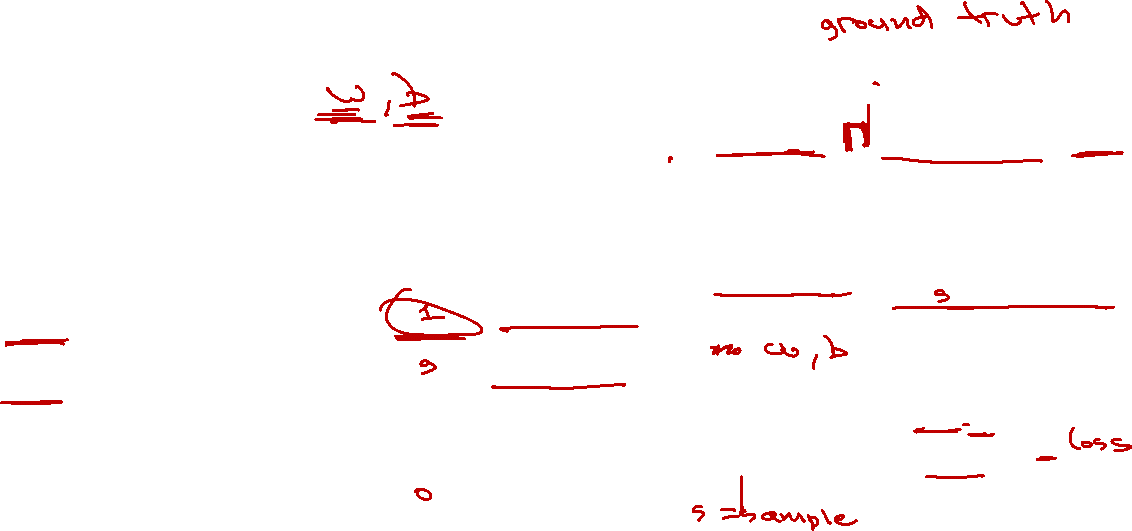 ground truth
w, b
1
9
9
w, b
loss
0
s sample